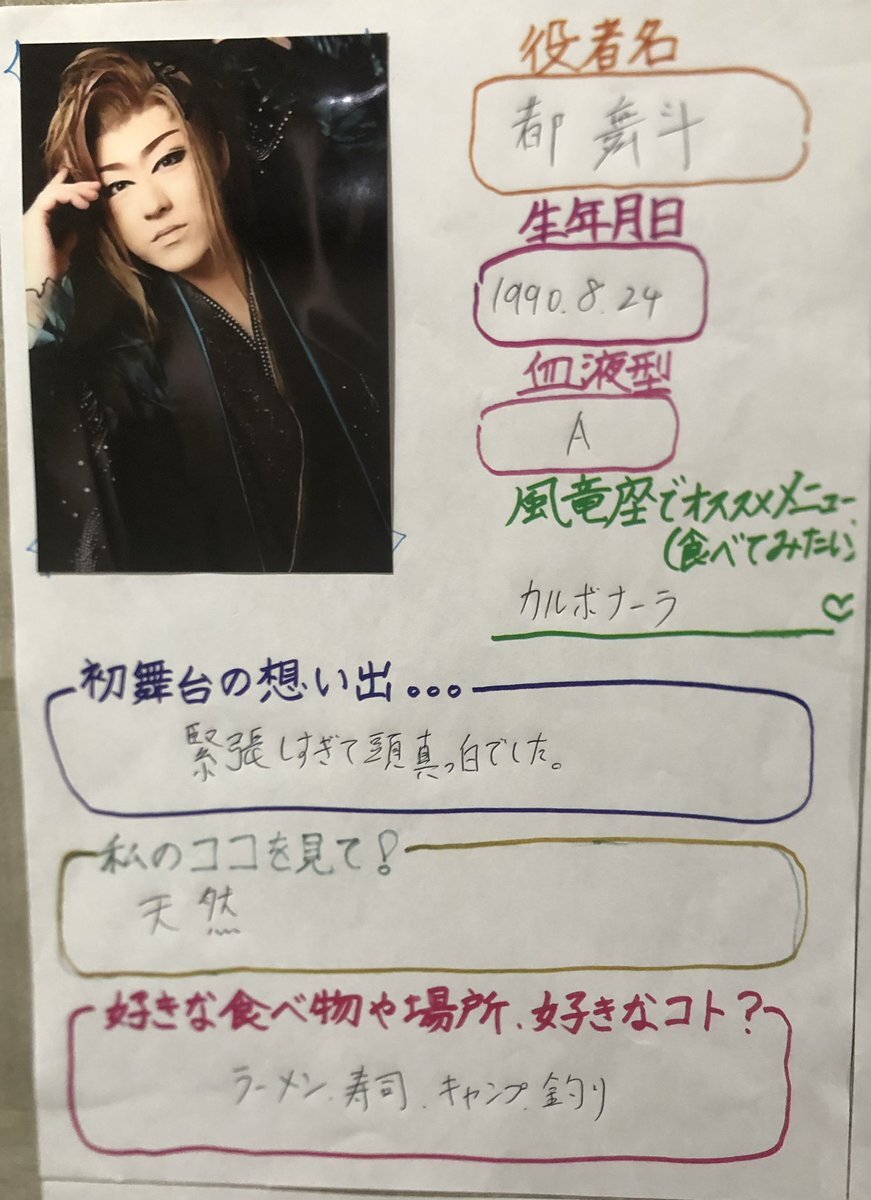 役者名
都 舞斗
生年月日
1990.8.24
血液型
A
風竜座でオススメメニュー
(食べてみたい)
カルボナーラ
初舞台の想い出...
緊張しすぎて頭真っ白でした。
私のココを見て!
天然
好きな食べ物や場所、好きなコト?
ラーメン、寿司、キャンプ、釣り